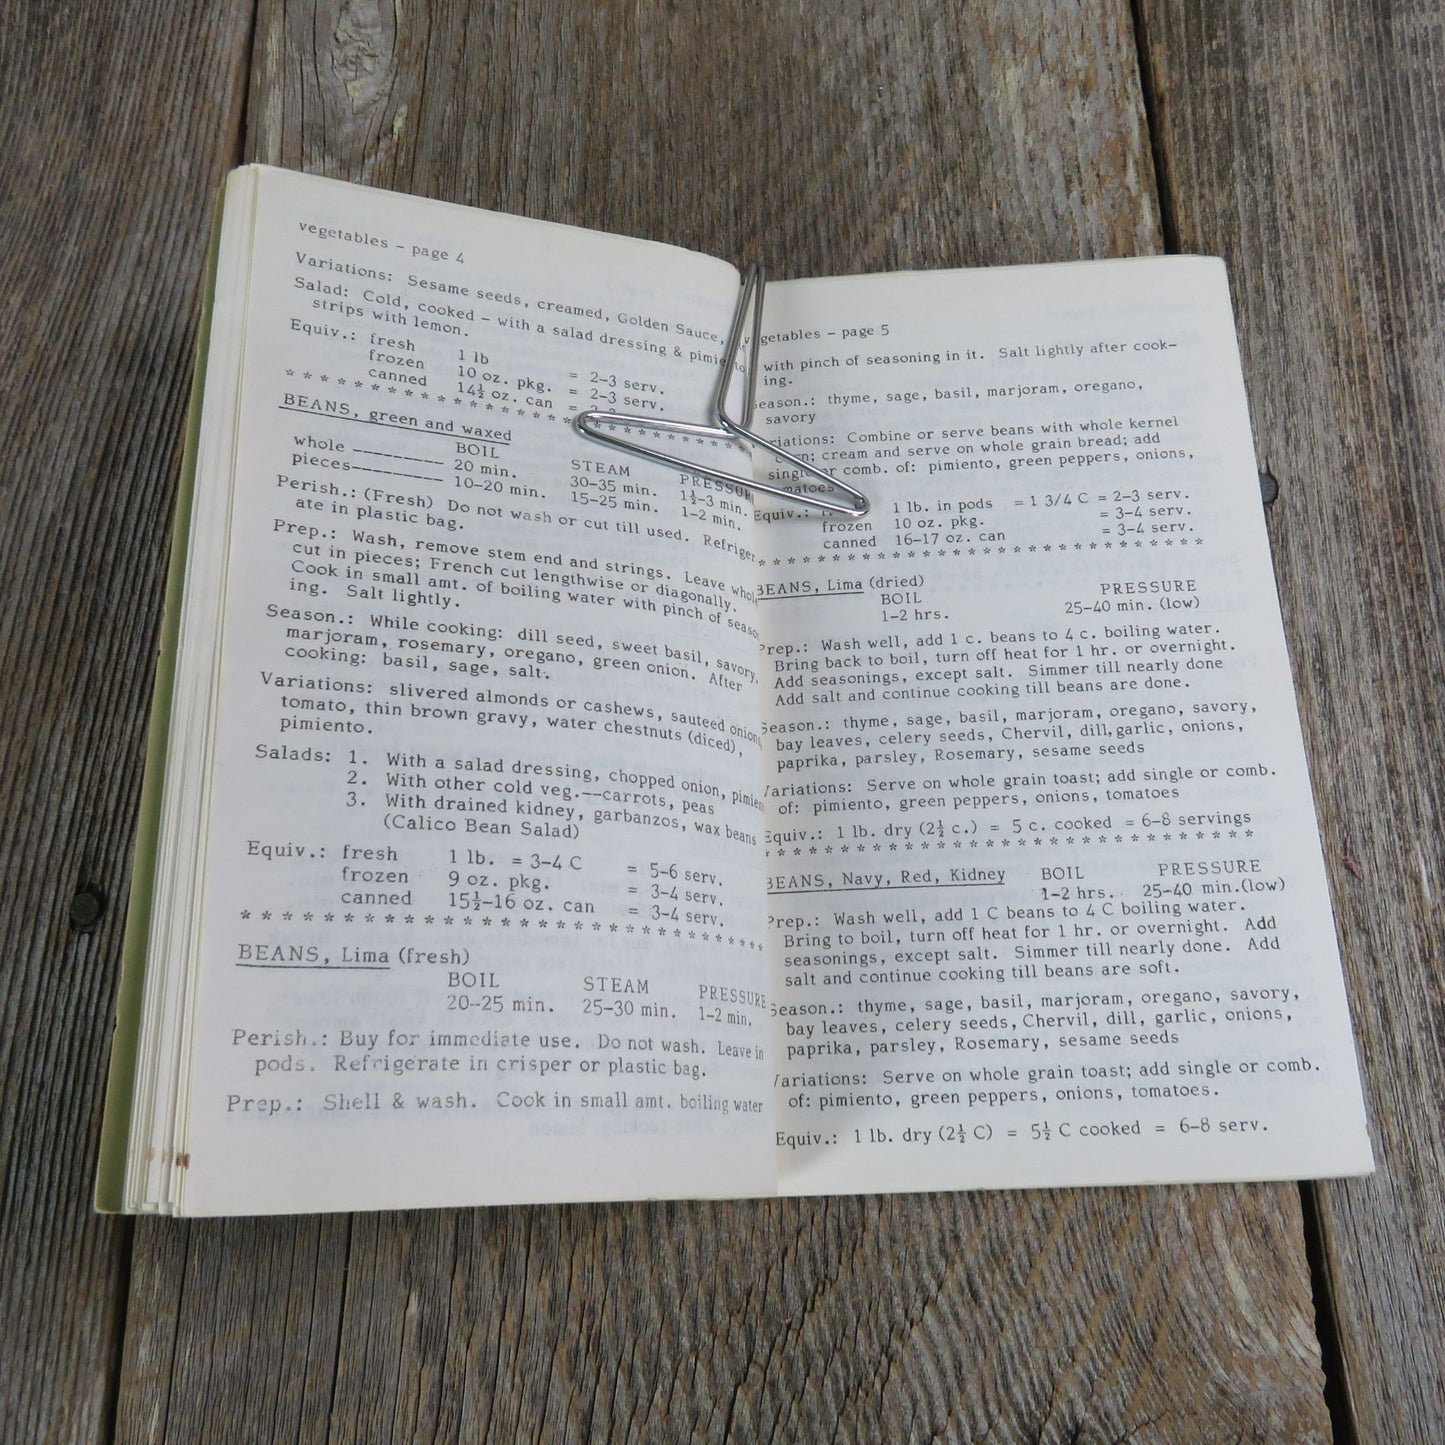 vegetables - page 4
Variations: Sesame seeds, creamed, Golden Sauce,
Salad: Cold, cooked - with a salad dressing & pimiento
strips with lemon.
Equiv.: fresh 1 lb = 2-3 serv.
frozen 10 oz. pkg. = 2-3 serv.
canned 14½ oz. can =
* * * * * * * * * * * * * * * * * * * * * * * * * * * *
BEANS, green and waxed
BOIL STEAM PRESSURE
whole --------- 20 min. 30-35 min. 1½-3 min.
pieces--------- 10-20 min. 15-25 min. 1-2 min.
Perish.: (Fresh) Do not wash or cut till used. Refriger-
ate in plastic bag.
Prep.: Wash, remove stem end and strings. Leave whole
cut in pieces; French cut lengthwise or diagonally.
Cook in small amt. of boiling water with pinch of season-
ing. Salt lightly.
Season.: While cooking: dill seed, sweet basil, savory,
marjoram, rosemary, oregano, green onion. After
cooking: basil, sage, salt.
Variations: slivered almonds or cashews, sauteed onions,
tomato, thin brown gravy, water chestnuts (diced),
pimiento.
Salads: 1. With a salad dressing, chopped onion, pimien
2. With other cold veg.--carrots, peas
3. With drained kidney, garbanzos, wax beans
(Calico Bean Salad)
Equiv.: fresh 1 lb. = 3-4 C = 5-6 serv.
frozen 9 oz. pkg. = 3-4 serv.
canned 15½-16 oz. can = 3-4 serv.
* * * * * * * * * * * * * * * * * * * * * * * * * * * *
BEANS, Lima (fresh)
BOIL STEAM PRESSURE
20-25 min. 25-30 min. 1-2 min.
Perish.: Buy for immediate use. Do not wash. Leave in
pods. Refrigerate in crisper or plastic bag.
Prep.: Shell & wash. Cook in small amt. boiling water
vegetables - page 5
with pinch of seasoning in it. Salt lightly after cook-
ing.
Season.: thyme, sage, basil, marjoram, oregano,
savory
Variations: Combine or serve beans with whole kernel
corn; cream and serve on whole grain bread; add
single or comb. of: pimiento, green peppers, onions,
tomatoes
Equiv.: 1 lb. in pods = 1 3/4 C = 2-3 serv.
frozen 10 oz. pkg. = 3-4 serv.
canned 16-17 oz. can = 3-4 serv.
* * * * * * * * * * * * * * * * * * * * * * * * * * * *
BEANS, Lima (dried)
BOIL PRESSURE
1-2 hrs. 25-40 min. (low)
Prep.: Wash well, add 1 c. beans to 4 c. boiling water.
Bring back to boil, turn off heat for 1 hr. or overnight.
Add seasonings, except salt. Simmer till nearly done
Add salt and continue cooking till beans are done.
Season.: thyme, sage, basil, marjoram, oregano, savory,
bay leaves, celery seeds, Chervil, dill, garlic, onions,
paprika, parsley, Rosemary, sesame seeds
Variations: Serve on whole grain toast; add single or comb.
of: pimiento, green peppers, onions, tomatoes
Equiv.: 1 lb. dry (2½ c.) = 5 c. cooked = 6-8 servings
* * * * * * * * * * * * * * * * * * * * * * * * * * * *
BEANS, Navy, Red, Kidney BOIL PRESSURE
1-2 hrs. 25-40 min.(low)
Prep.: Wash well, add 1 C beans to 4 C boiling water.
Bring to boil, turn off heat for 1 hr. or overnight. Add
seasonings, except salt. Simmer till nearly done. Add
salt and continue cooking till beans are soft.
Season.: thyme, sage, basil, marjoram, oregano, savory,
bay leaves, celery seeds, Chervil, dill, garlic, onions,
paprika, parsley, Rosemary, sesame seeds
Variations: Serve on whole grain toast; add single or comb.
of: pimiento, green peppers, onions, tomatoes.
Equiv.: 1 lb. dry (2½ C) = 5½ C cooked = 6-8 serv.